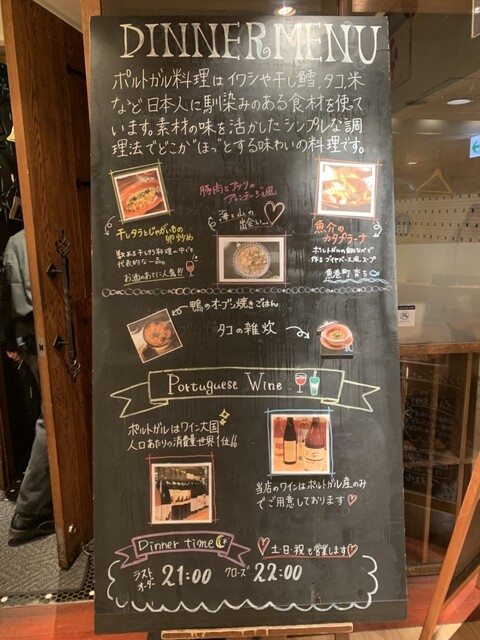 DINNER MENU
ポルトガル料理はイワシや干し鱈、タコ、米
など日本人に馴染みのある食材を使って
います。素材の味を活かしたシンプルな調
理法でどこか"ほっ"とする味わいの料理です。
豚肉とアサリの
アレンテージョ風
海と山の
出会い
干しタラとじゃがいもの
卵炒め
数ある干しタラ料理の中でも
代表的な一品。
お酒のあてに人気!!
魚介の
カタプラーナ
ポルトガルの銅なべで
作るブイヤベース風スープ
魚港町育ち
鴨のオーブン焼きごはん
タコの雑炊
Portuguese Wine
ポルトガルはワイン大国
人口あたりの消費量世界1位
当店のワインはポルトガル産のみ
でご用意しております
Dinner time
土・日・祝も営業します
ラスト
オーダー 21:00 クローズ 22:00